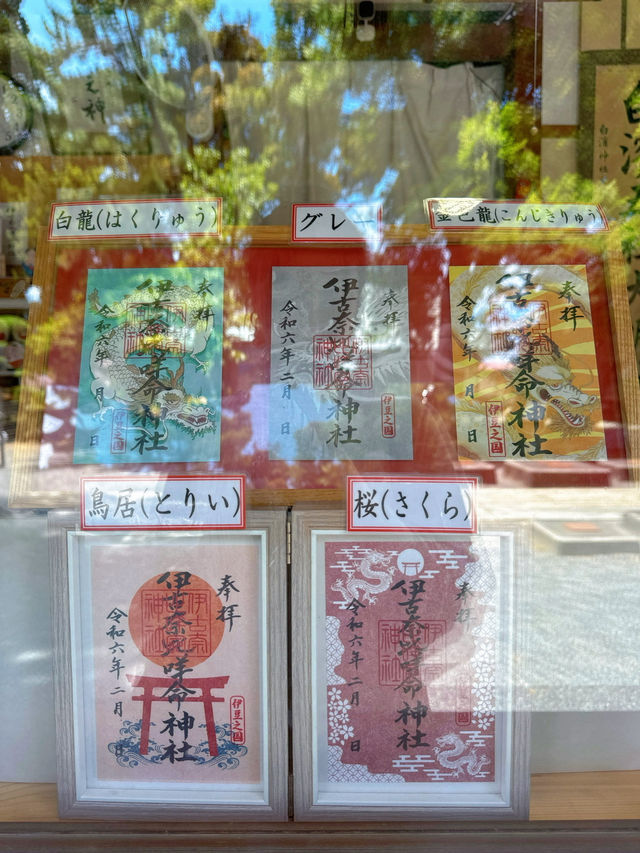 白龍(はくりゅう)
グレー
金色龍(こんじきりゅう)
奉拝
伊古奈比咩命神社
令和六年 月 日
伊豆之国
奉拝
伊古奈比咩命神社
令和六年二月 日
伊豆之国
奉拝
伊古奈比咩命神社
令和六年 月 日
伊豆之国
鳥居(とりい)
桜(さくら)
奉拝
伊古奈比咩命神社
令和六年二月 日
伊豆之国
奉拝
伊古奈比咩命神社
令和六年二月 日
白濱神社